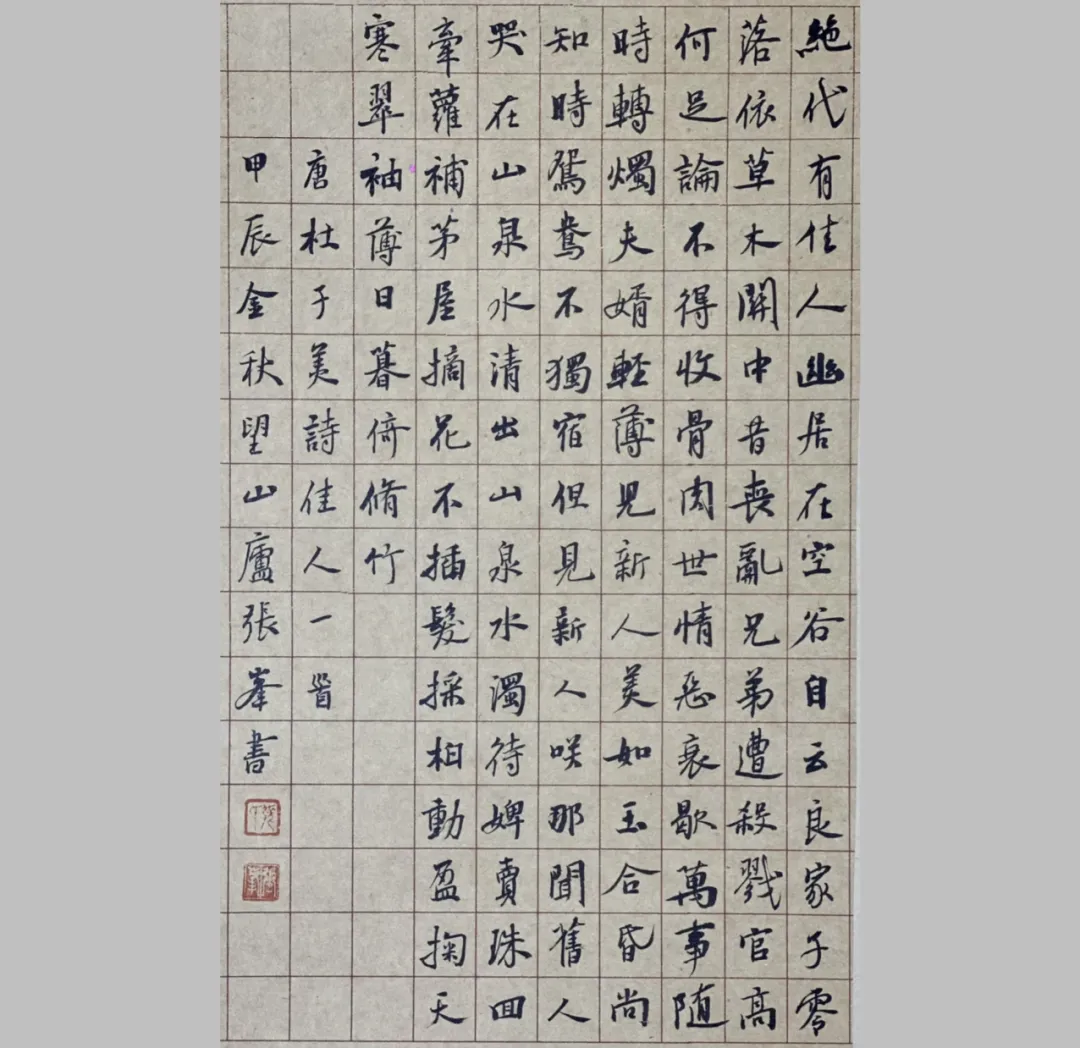 絶代有佳人幽居在空谷自云良家子零
落依草木關中昔喪亂兄弟遭殺戮官高
何足論不得收骨肉世情惡衰歇萬事随
時轉燭夫婿輕薄兒新人美如玉合昏尚
知時鴛鴦不獨宿但見新人咲那聞舊人
哭在山泉水清出山泉水濁待婢賣珠回
牽蘿補茅屋摘花不插髮採柏動盈掬天
寒翠袖薄日暮倚脩竹
唐杜子美詩佳人一首
甲辰金秋望山廬張峯書